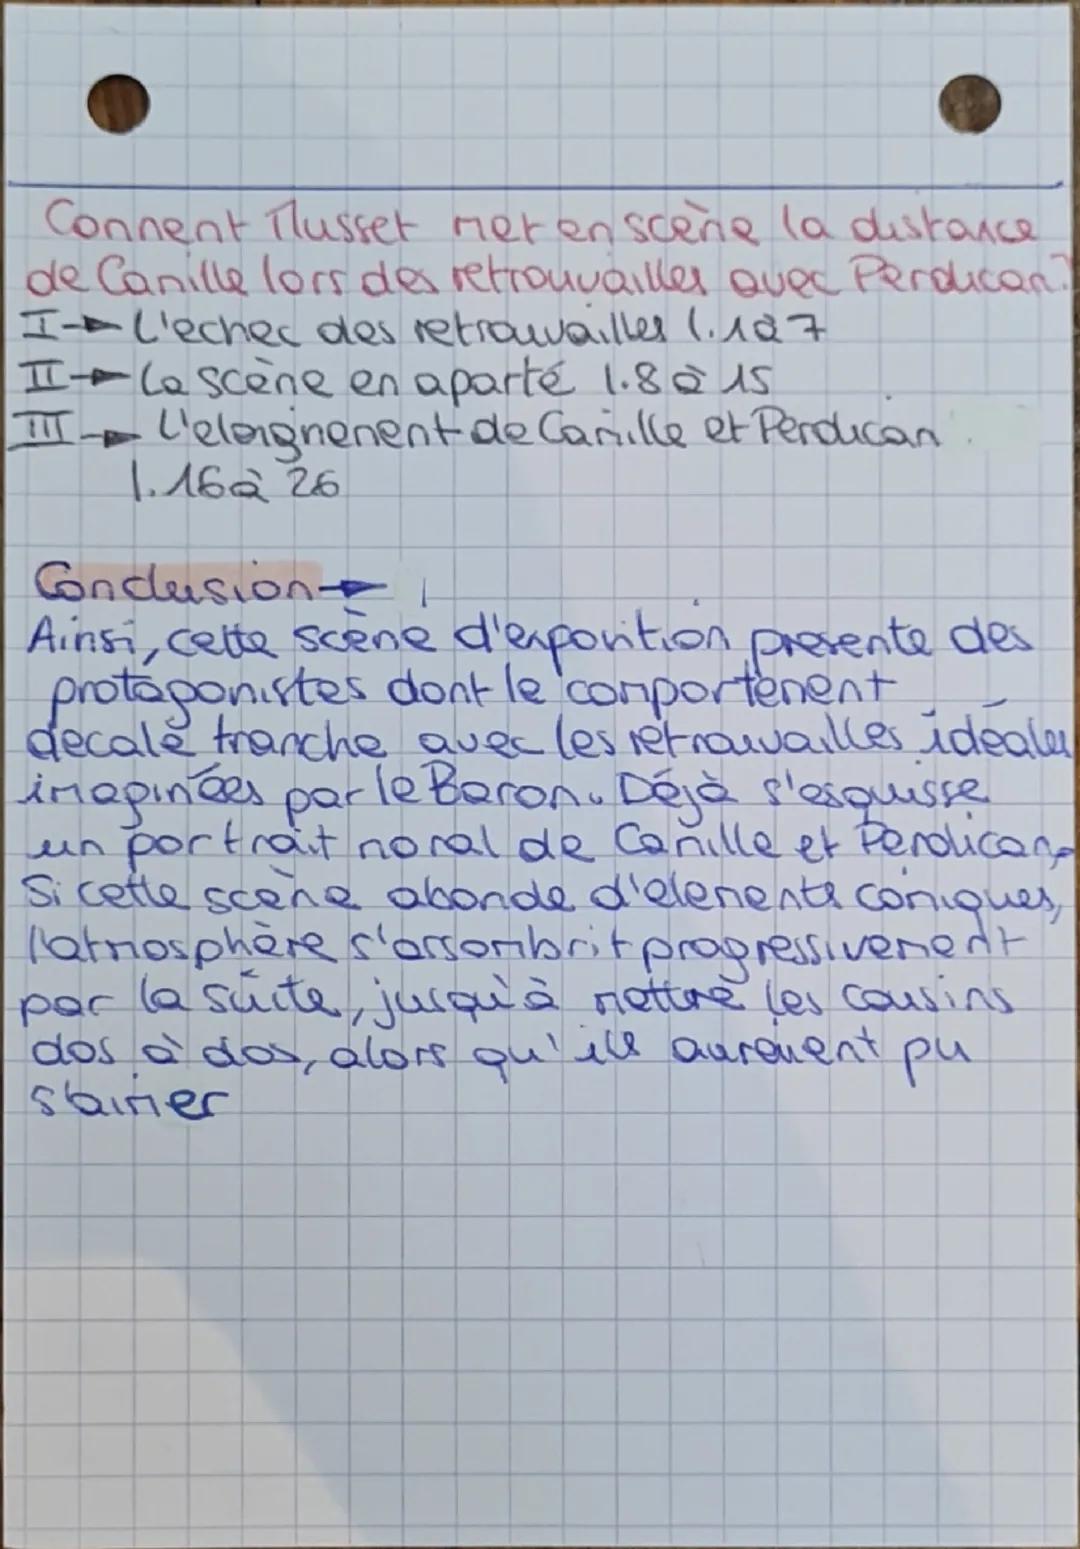 Comment Musset met en scène la distance
de Camille lors des retrouvailles avec Perdican?
I→ L'echec des retrouvailles l.1à7
II→ La scène en aparté l.8 à 15
III→ L'eloignement de Camille et Perdican.
l.16 à 26
Conclusion→
Ainsi, cette scène d'exposition presente des
protagonistes dont le comportement
decalé tranche avec les retrouvailles idéales
imaginées par le Baron. Déjà s'esquisse
un portrait moral de Camille et Perdican.
Si cette scène abonde d'elements comiques,
l'atmosphère s'assombrit progressivement
par la suite, jusqu'à mettre les cousins
dos à dos, alors qu'ils auraient pu
s'aimer